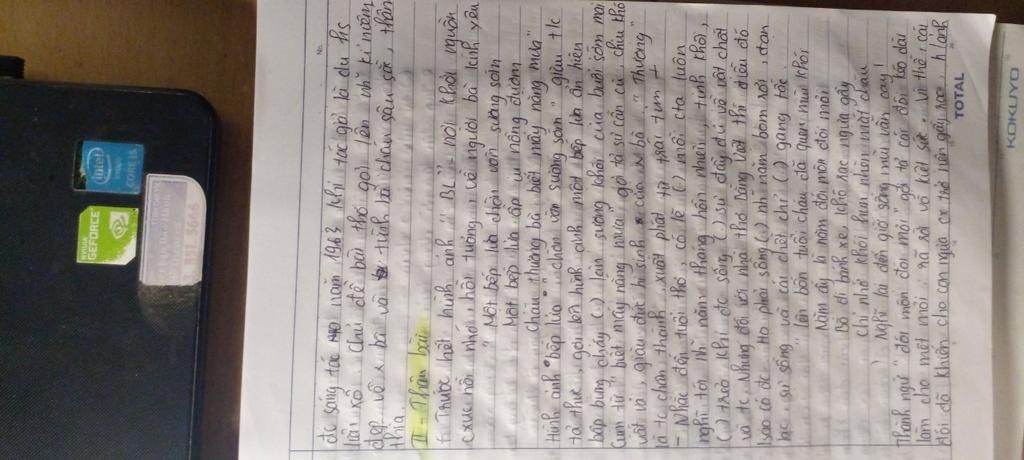 đc sáng tác năm 1963 khi tác giả là du hs
Chủ đề bài thơ gợi lên những kỉ niệm
đẹp về bà và tình bà cháu sâu sắc, thấm
thía
II - Thân bài
Trước hết hình ảnh "BL" - nơi khơi nguồn
cxúc nỗi nhớ, hồi tưởng, về người bà kính yêu
"Một bếp lửa chờn vờn sương sớm
Một bếp lửa ấp iu nồng đượm
Cháu thương bà biết mấy nắng mưa"
hình ảnh "bếp lửa" "chờn vờn sương sớm" giàu tc
tả thực, gợi lên hình ảnh một bếp lửa ẩn hiện
bập bùng cháy làn sương khói của buổi sớm mai
Cụm từ "biết mấy nắng mưa" gợi tả sự cần cù chịu thg
vất vả, giàu đức hi sinh của bà "Thương"
là tc chân thành xuất phát từ trái tim
- Nhắc đến tuổi thơ, có lẽ mỗi ta luôn
nghĩ tới những năm tháng hồn nhiên, tinh khôi,
trò khi đc sống sự đầy đủ về vật chất
và tc. Nhưng đối với nhà thơ Bằng Việt thì điều đó
sao có đc tro phải sống những năm bom rơi, đạn
lạc, sự sống và cái chết chỉ gang tấc
"Lên bốn tuổi cháu đã quen mùi khói
Năm ấy là năm đói mòn đói mỏi
Bố đi đánh xe, khô rạc ngựa gầy
Chỉ nhớ khói hun nhèm mắt cháu
Nghĩ lại đến giờ sống mũi vẫn cay!
Thành ngữ "đói mòn đói mỏi" gợi tả cái đói kéo dài
làm cho mệt mỏi, rã rời và kiệt sức. Vì thế, cái
đói đã khiến cho con ngựa trở nên gầy rạc
No.
TOTAL
KOKUYO
intel
CORE
NVIDIA
GEFORCE